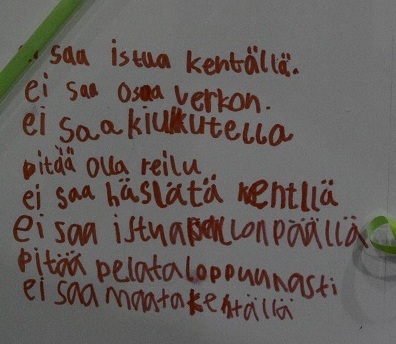 saa istua kentällä.
ei saa osaa verkon.
ei saa kiukutella
pitää olla reilu
ei saa häslätä kentllä
ei saa istua pallon päällä
pitää pelata loppuunasti
ei saa maata kentällä